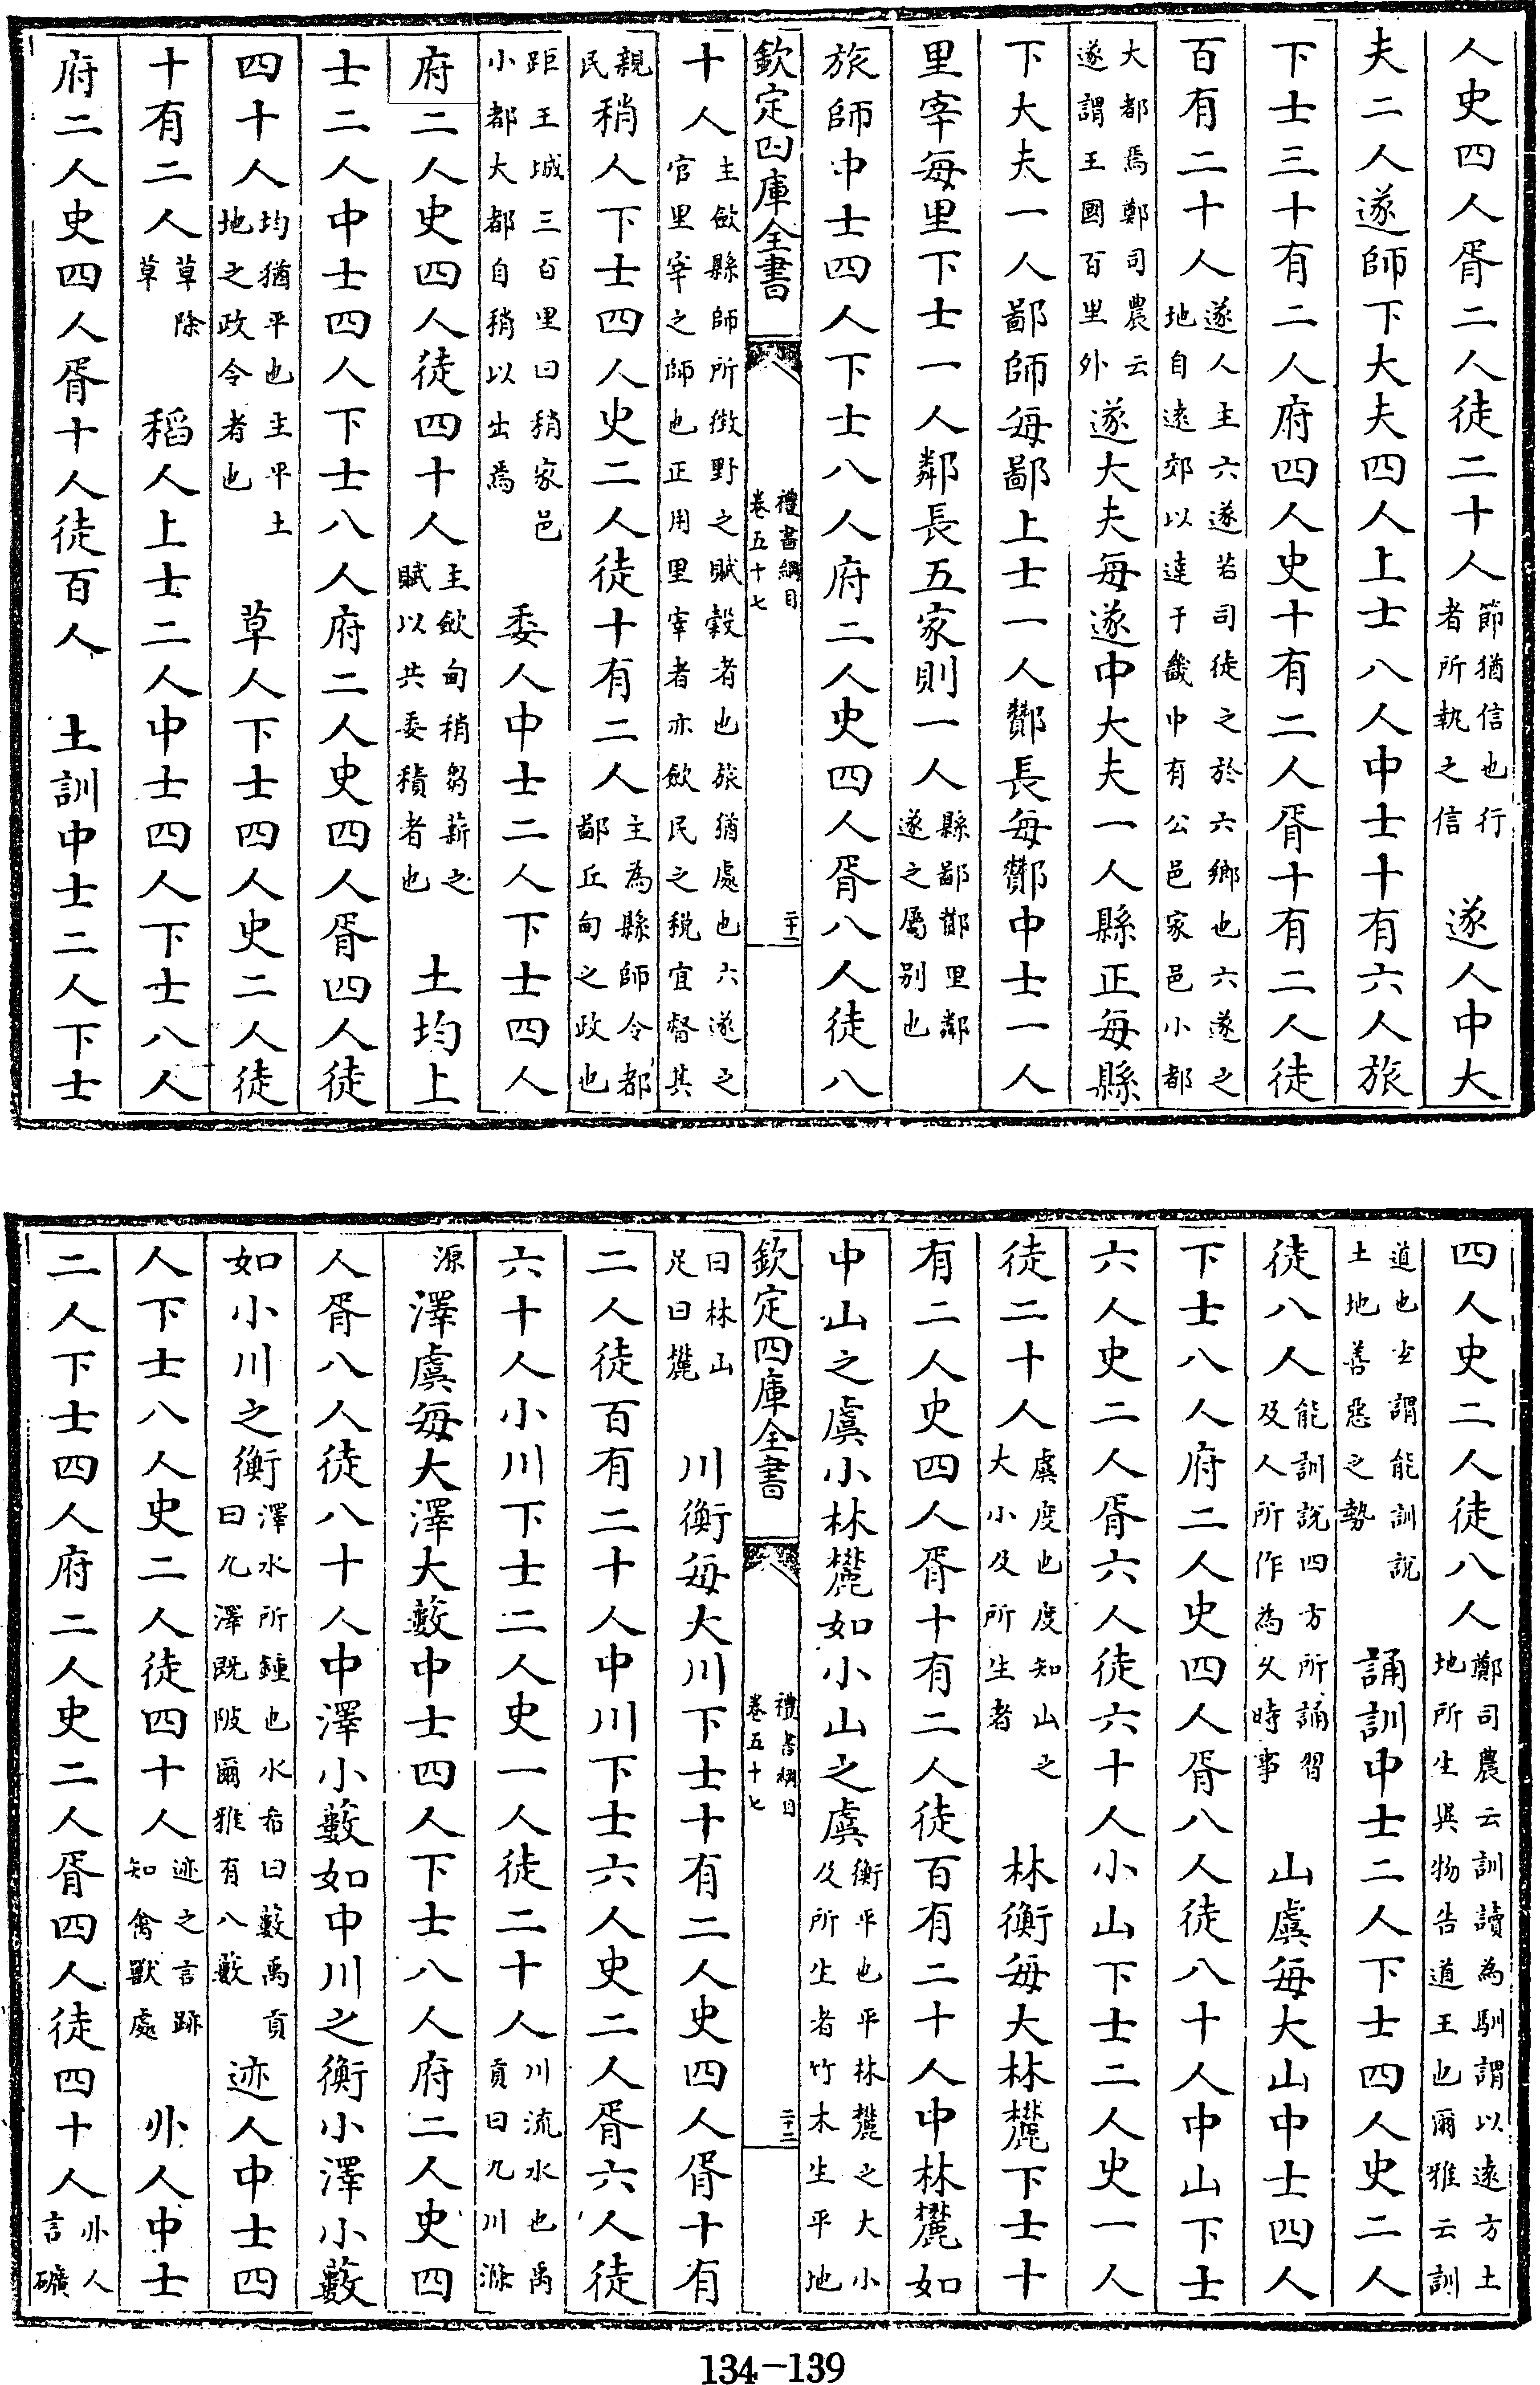 人史四人胥二人徒二十人節猶信也行者所執之信　遂人中大
夫二人遂師下大夫四人上士八人中士十有六人旅
下士三十有二人府四人史十有二人胥十有二人徒
百有二十人遂人主六遂若司徒之於六鄉也六遂之地自遠郊以達于畿中有公邑家邑小都
大都焉鄭司農云遂謂王國百里外遂大夫每遂中大夫一人縣正每縣
下大夫一人鄙師每鄙上士一人酇長每酇中士一人
里宰每里下士一人鄰長五家則一人縣鄙酇里鄰遂之屬别也
旅師中士四人下士八人府二人史四人胥八人徒八
欽定四庫全書　禮書綱目卷五十七　二十一
十人主斂縣師所徴野之賦穀者也旅猶處也六遂之官里宰之師也正用里宰者亦斂民之税宜督其
親民稍人下士四人史二人徒十有二人主為縣師令都鄙丘甸之政也
距王城三百里曰稍家邑小都大都自稍以出焉　委人中士二人下士四人
府二人史四人徒四十人主斂甸稍芻薪之賦以共委積者也　土均上
士二人中士四人下士八人府二人史四人胥四人徒
四十人均猶平也主平土地之政令者也　草人下士四人史二人徒
十有二人草除草　稻人上士二人中士四人下士八人
府二人史四人胥十人徒百人　土訓中士二人下士
四人史二人徒八人鄭司農云訓讀為馴謂以遠方土地所生異物告道王也爾雅云訓
道也玄謂能訓說土地善惡之勢　誦訓中士二人下士四人史二人
徒八人能訓說四方所誦習及人所作為乆時事　山虞每大山中士四人
下士八人府二人史四人胥八人徒八十人中山下士
六人史二人胥六人徒六十人小山下士二人史一人
徒二十人虞度也度知山之大小及所生者　林衡每大林麓下士十
有二人史四人胥十有二人徒百有二十人中林麓如
中山之虞小林麓如小山之虞衡平也平林麓之大小及所生者竹木生平地
欽定四庫全書　禮書綱目卷五十七　二十二
曰林山足曰麓　川衡每大川下士十有二人史四人胥十有
二人徒百有二十人中川下士六人史二人胥六人徒
六十人小川下士二人史一人徒二十人川流水也禹貢曰九川滌
源　澤虞每大澤大藪中士四人下士八人府二人史四
人胥八人徒八十人中澤小藪如中川之衡小澤小藪
如小川之衡澤水所鍾也水希曰藪禹貢曰九澤既陂爾雅有八藪　迹人中士四
人下士八人史二人徒四十人迹之言跡知禽獸處　丱人中士
二人下士四人府二人史二人胥四人徒四十人丱人言礦
134-139